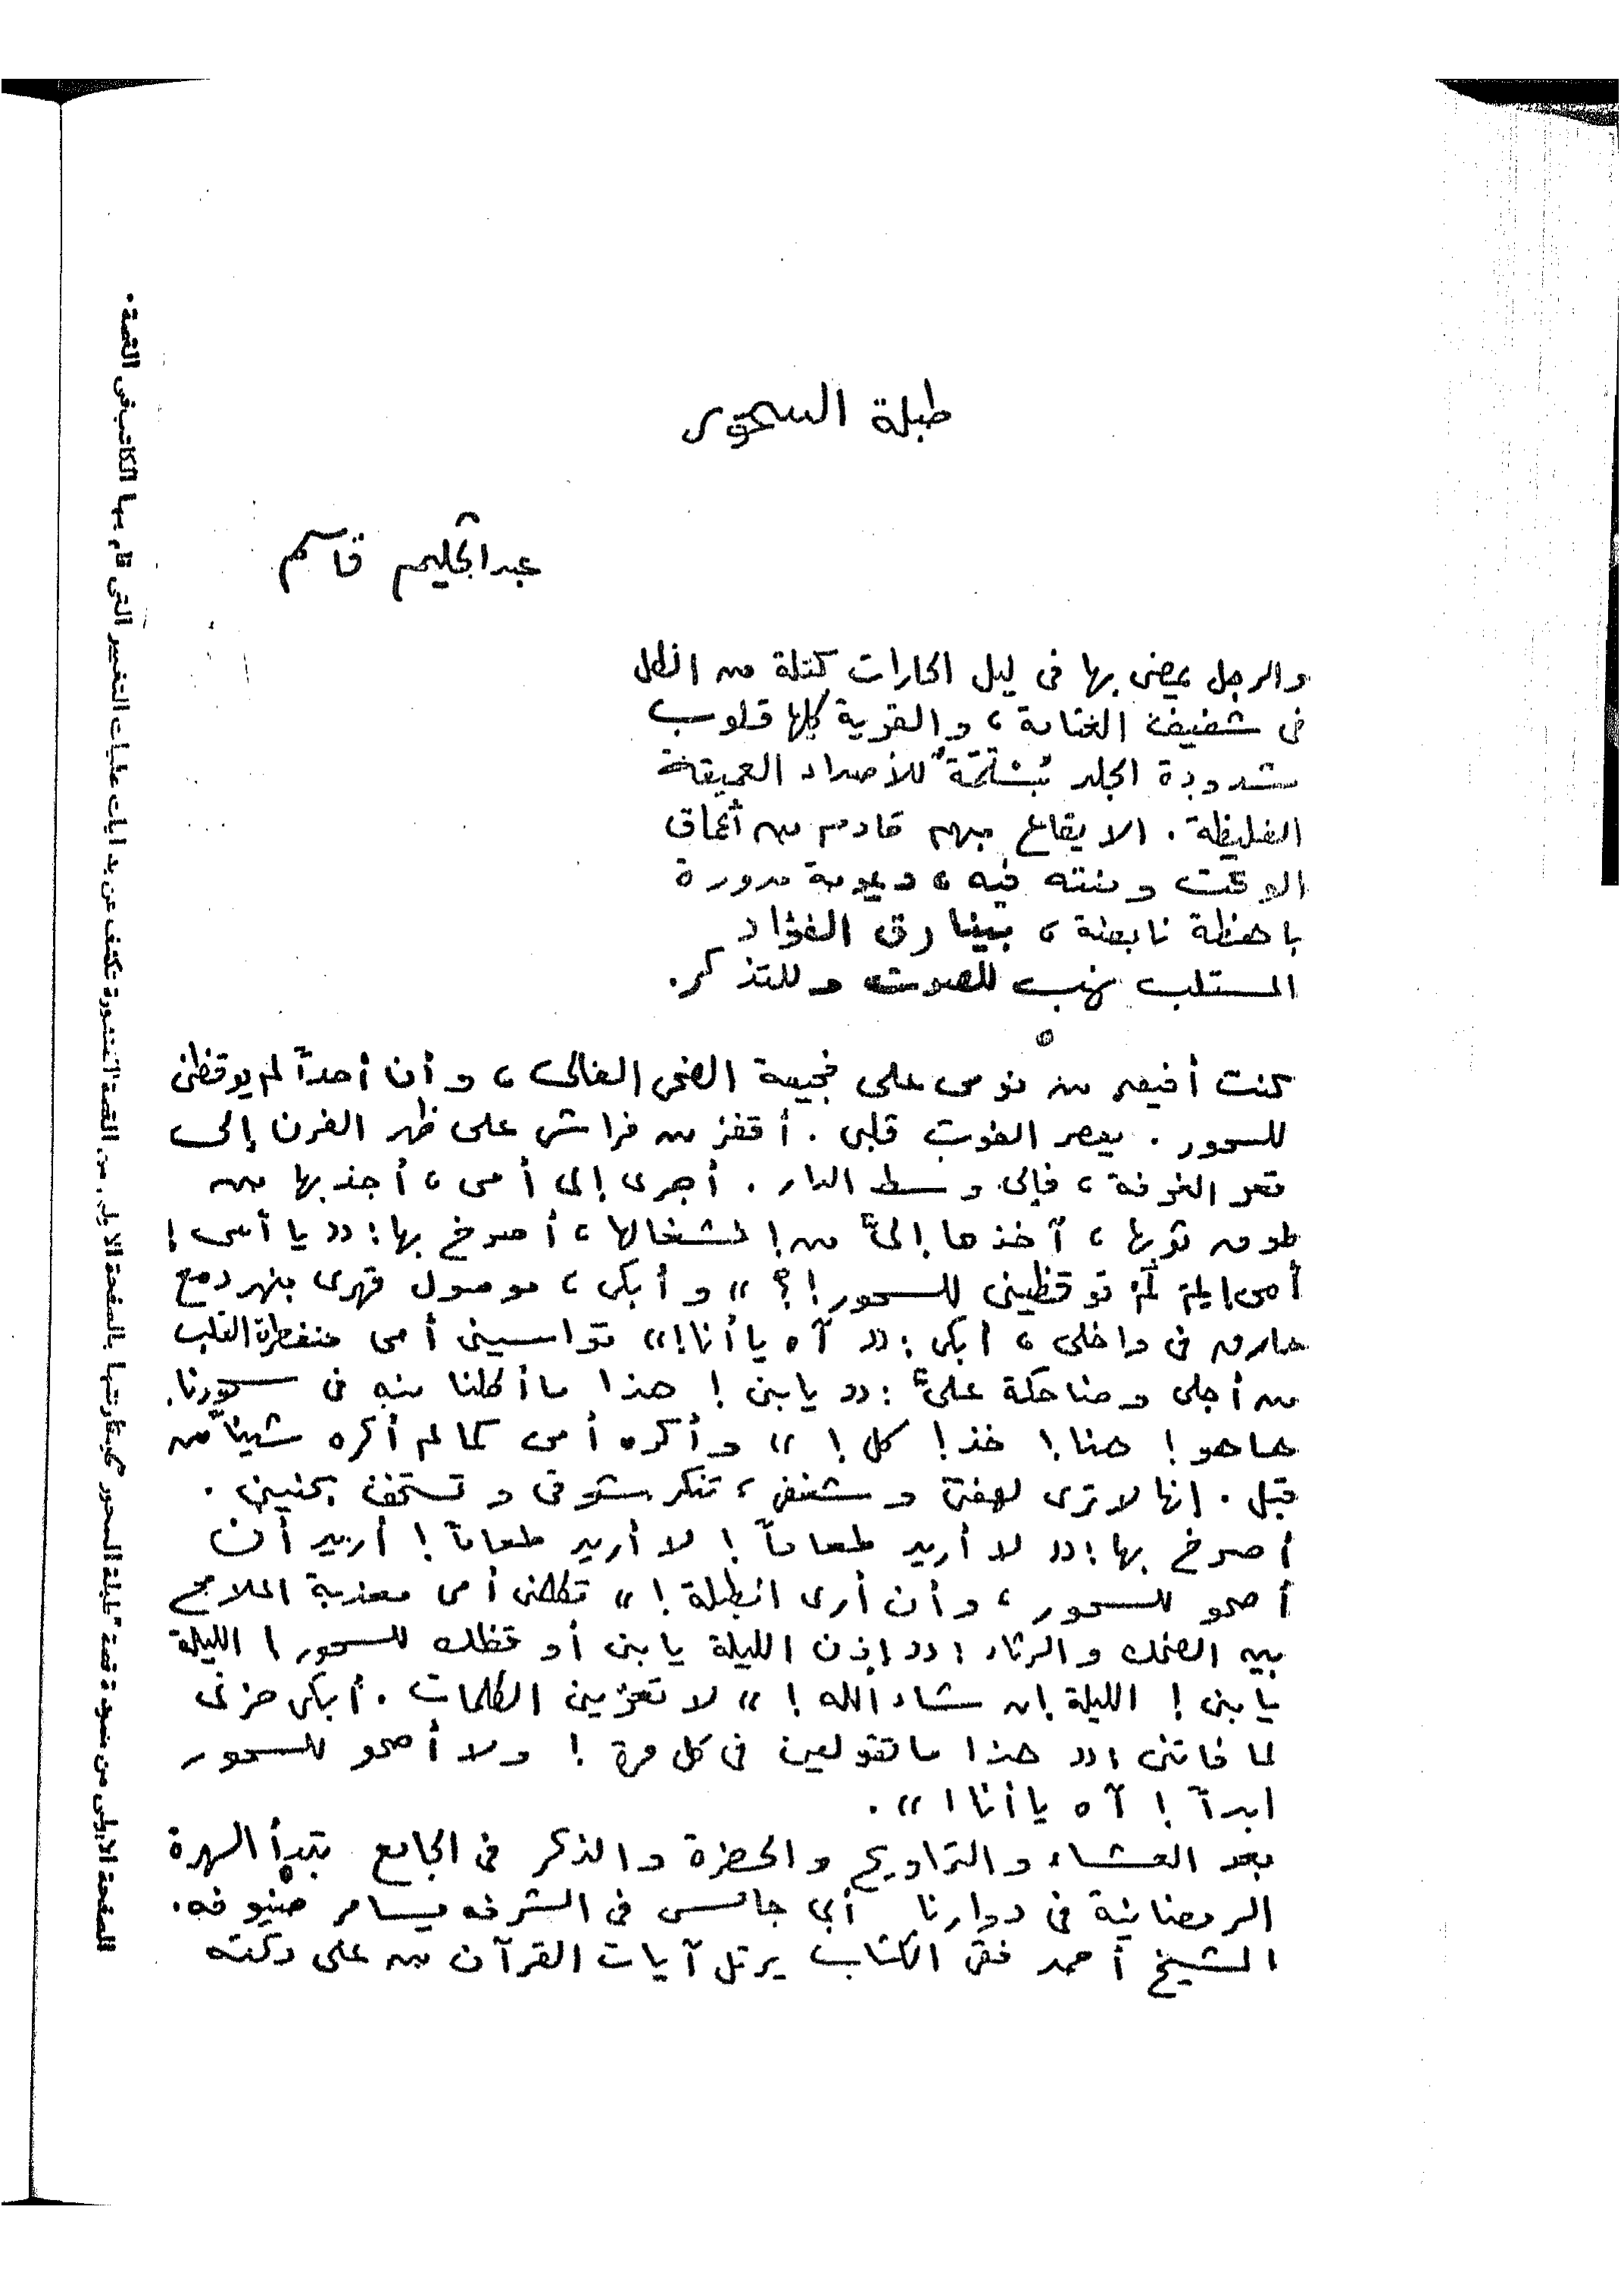 طبلة السحور
عبد الحكيم قاسم
والرجل يمضى بها فى ليل الحارات كتلة من الظل
فى شفيف العتامة، والقرية كلها قلوب
مشدودة الجلد للأصداء العميقة
الغليظة. الايقاع مبهم قادم من أعماق
الوقت ومنته فيه، ديمومة مدورة
باهظة نابضة، بينا رق الفؤاد
المستلب نهب للصوت وللتذكر.
كنت أفيق من نومى على فجيعة الضحى العالى، وأن أحداً لم يوقظنى
للسحور. يعصر الفوت قلبى. أقفز من فراشى على ظهر الفرن إلى
قعر الغرفة، فإلى وسط الدار. أجرى إلى أمى، أجذبها من
طوق ثوبها، آخذها إلىّ من انشغالها، أصرخ بها: «يا أمى!
أمى! لِمَ لَمْ توقظينى للسحور!؟» وأبكى، موصول قهرى بنهر دمع
حارق فى داخلى، أبكى: «آه يا أنا!» تواسينى أمى منفطرة القلب
من أجلى وضاحكة علىّ: «يابنى! هذا ما أكلنا منه فى سحورنا.
هاهو! هنا! خذ! كل!» وأكره أمى كما لم أكره شيئاً من
قبل. إنها لا ترى لهفتى وشغفى، تنكر شوقى وتستخف بحنينى.
أصرخ بها: «لا أريد طعاماً! لا أريد طعاماً! أريد أن
أصحو للسحور، وأن أرى الطبلة!» تكلمنى أمى معذبة الملامح
بين الضحك والرثاء: «إذن الليلة يابنى أوقظك للسحور! الليلة
يابنى! الليلة إن شاء الله!» لا تعزينى الكلمات. أبكى حزنى
لما فاتنى: «هذا ما تقولين فى كل مرة! ولا أصحو للسحور
ابداً! آه يا أنا!».
بعد العشاء والتراويح والحضرة والذكر فى الجامع تبدأ السهرة
الرمضانية فى دوارنا أبى جالس فى الشرفه يسامر ضيوفه.
الشيخ أحمد فقى الكتاب يرتل آيات القرآن من على دكته
الصفحة الأولى من مسودة قصة "طبلة السحور" بمقارنتها بالصفحة الأولى من القصة المنشورة تكشف عن بدايات عمليات التغيير التى قام بها الكاتب فى القصة.